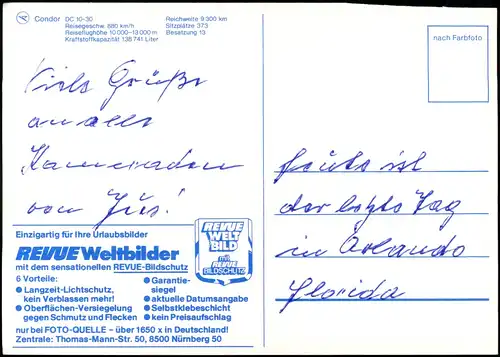 Condor DC 10-30
Reisegeschw. 880 km/h
Reiseflughöhe 10 000–13 000 m
Kraftstoffkapazität 138 741 Liter
Reichweite 9 300 km
Sitzplätze 373
Besatzung 13
nach Farbfoto
Viele Grüße
an alle
Kameraden
von
heute ist
der letzte Tag
in Orlando
Florida
Einzigartig für Ihre Urlaubsbilder
REVUE Weltbilder
mit dem sensationellen REVUE-Bildschutz
6 Vorteile:
● Langzeit-Lichtschutz,
kein Verblassen mehr!
● Oberflächen-Versiegelung
gegen Schmutz und Flecken
● Garantie-
siegel
● aktuelle Datumsangabe
● Selbstklebeschicht
● kein Preisaufschlag
REVUE
WELT
BILD
mit
REVUE
BILDSCHUTZ
nur bei FOTO-QUELLE – über 1650 x in Deutschland!
Zentrale: Thomas-Mann-Str. 50, 8500 Nürnberg 50